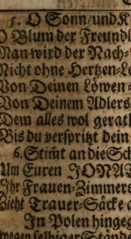 1. O Sonn/und K
O Blum der Freundl
Man wird der Nach-
Nicht ohne Hertzen-L
Von Deinen Löwen-
Von Deinem Adlers
Dem alles wol gerath
Bis du verspritzt dein
6. Stimt an die Sch
Um Euren JONAT
Ihr Frauen-Zimmer
Zieht Trauer-Säcke a
In Polen hinge
wegen selbiger Stände